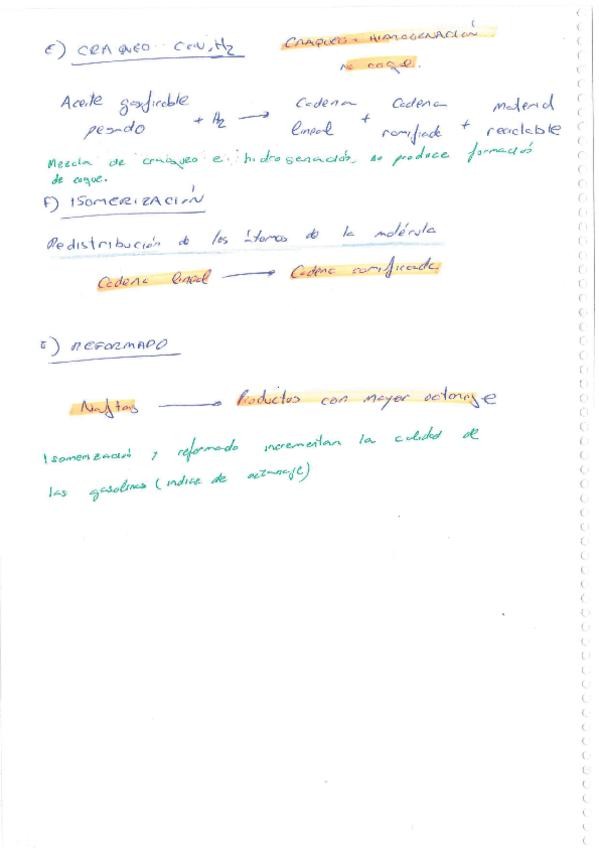 E) CRAQUEO CON H2
CRAQUEO + HIDROGENACIÓN
no coque.
Aceite gasificable pesado + H2 → Cadena lineal + Cadena ramificada + Material reciclable
Mezcla de craqueo e hidrogenación, no produce formación
de coque.
F) ISOMERIZACIÓN
Redistribución de los átomos de la molécula
Cadena lineal → Cadena ramificada
G) REFORMADO
Naftas → Productos con mayor octanaje
Isomerización y reformado incrementan la calidad de
las gasolinas (índice de octanaje)